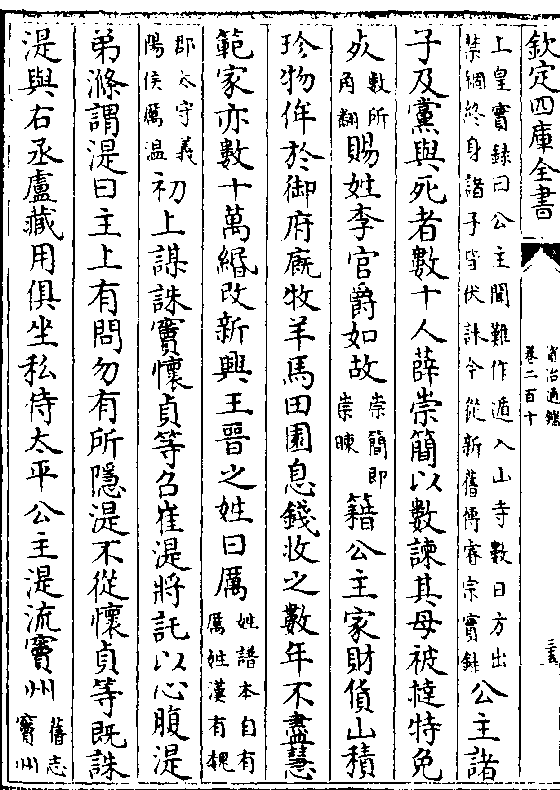 欽定四庫全書
資治通鑑
卷二百十
上皇實錄曰公主聞難作遁入山寺數日方出
禁錮終身諸子皆伏誅今從新舊傳睿宗實錄
公主諸
子及黨與死者數十人薛崇簡以數諫其母被撻特免
死
數所
角翻
賜姓李官爵如故
崇簡即
崇暕
籍公主家財貨山積
珍物侔於御府廐牧羊馬田園息錢收之數年不盡慧
範家亦數十萬緡改新興王晉之姓曰厲
姓譜本自有
厲姓漢有魏
郡太守義
陽侯厲温
初上謀誅竇懷貞等召崔湜將託以心腹湜
弟滌謂湜曰主上有問勿有所隱湜不從懷貞等既誅
湜與右丞盧藏用俱坐私侍太平公主湜流竇州
舊志
竇州